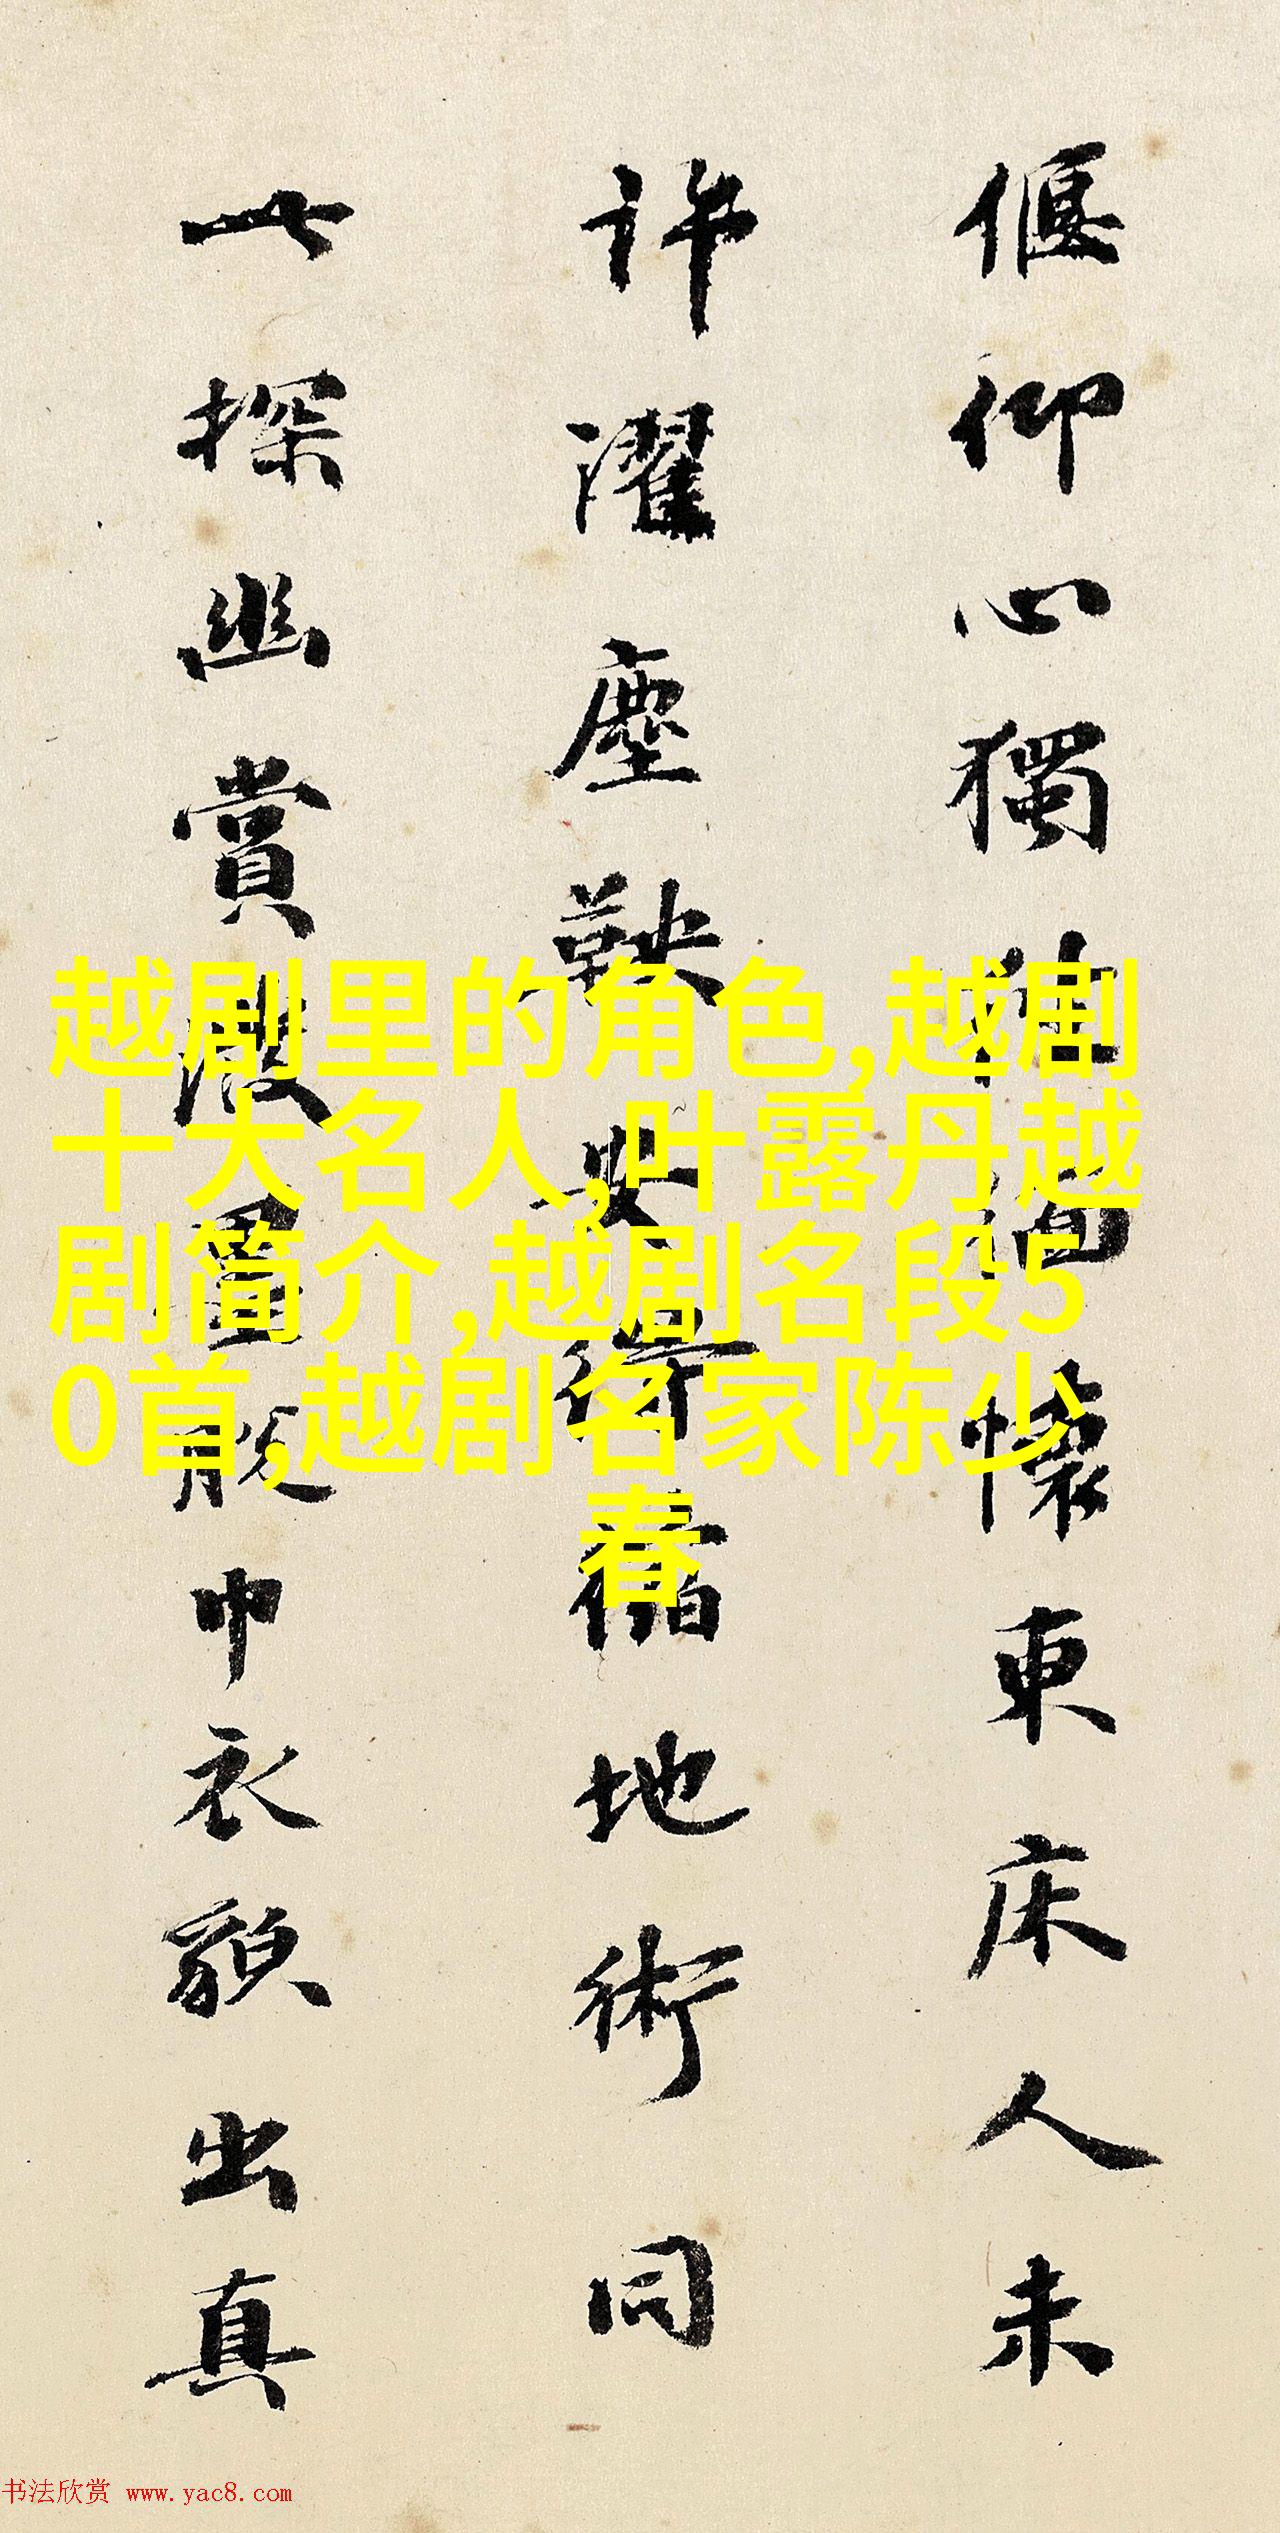 偃仰心獨
懷東床人未
許濯塵鞅
地術同
一探幽賞
巾衣顏出真
越剧里的角色,越剧
十大名人,叶露丹越
剧简介,越剧名段5
0首,越剧名家陈少
春
书法欣赏 www.yac8.com